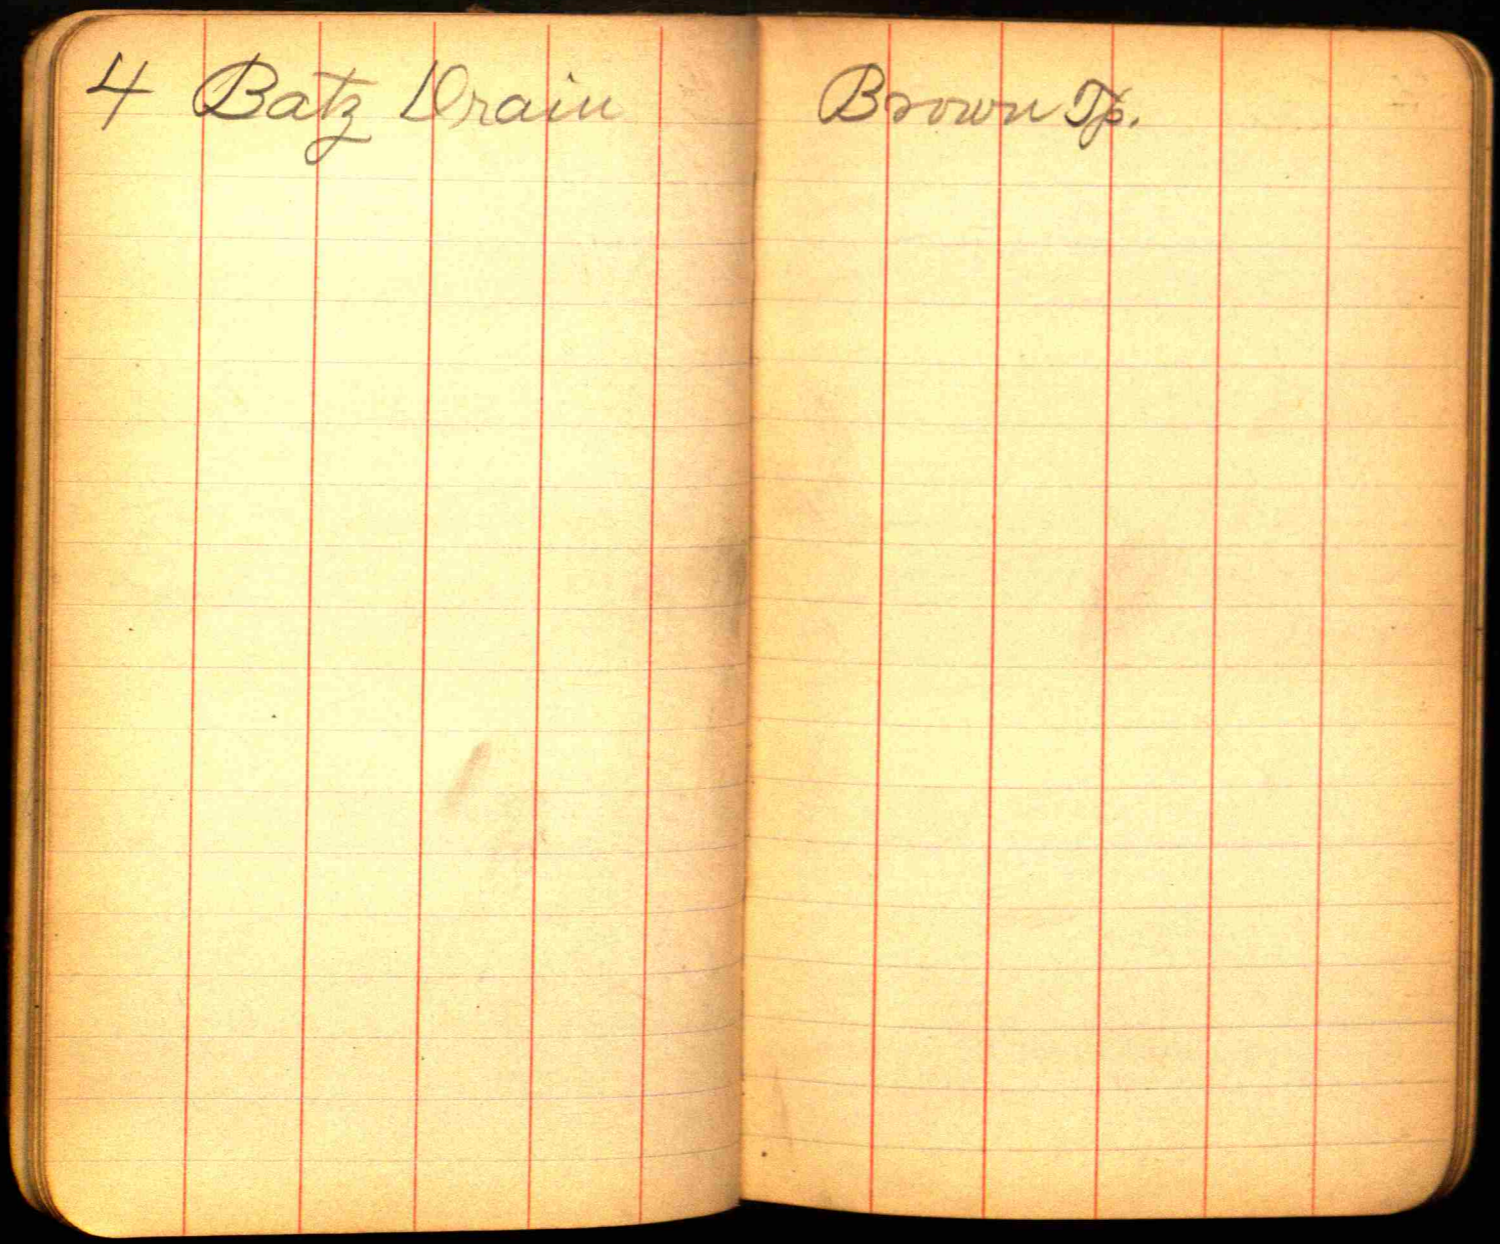 4 Batz Drain
Brown Tp.